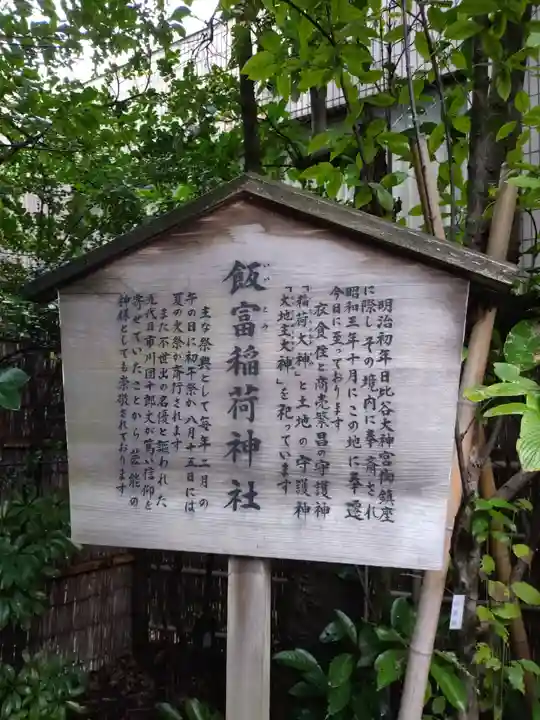 明治初年日比谷大神宮御鎮座
に際しその境内に奉斎され
昭和三年十月にこの地に奉遷
今日に至っております
衣食住と商売繁昌の守護神
「稲荷大神」と土地の守護神
「大地主大神」を祀っています
飯富稲荷神社
いいとみ
主な祭典として毎年二月の
午の日に初午祭か八月十五日には
夏の大祭か斉行されます
また不世出の名優と謳われた
九代目市川団十郎丈が篤い信仰を
寄せていたことから芸能の
神様としても崇敬されております